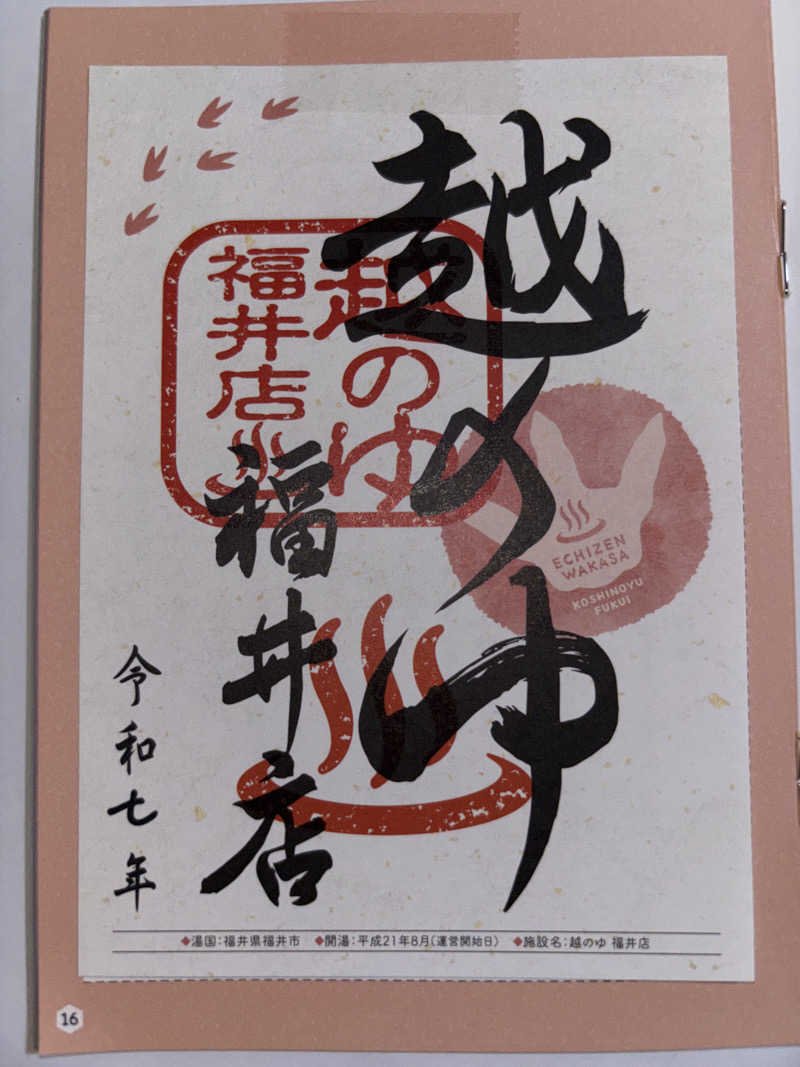 越のゆ
福井店
令和七年
越のゆ
福井店
ECHIZEN
WAKASA
KOSHINOYU
FUKUI
◆湯国：福井県福井市 ◆開湯：平成21年8月（運営開始日） ◆施設名：越のゆ 福井店
16